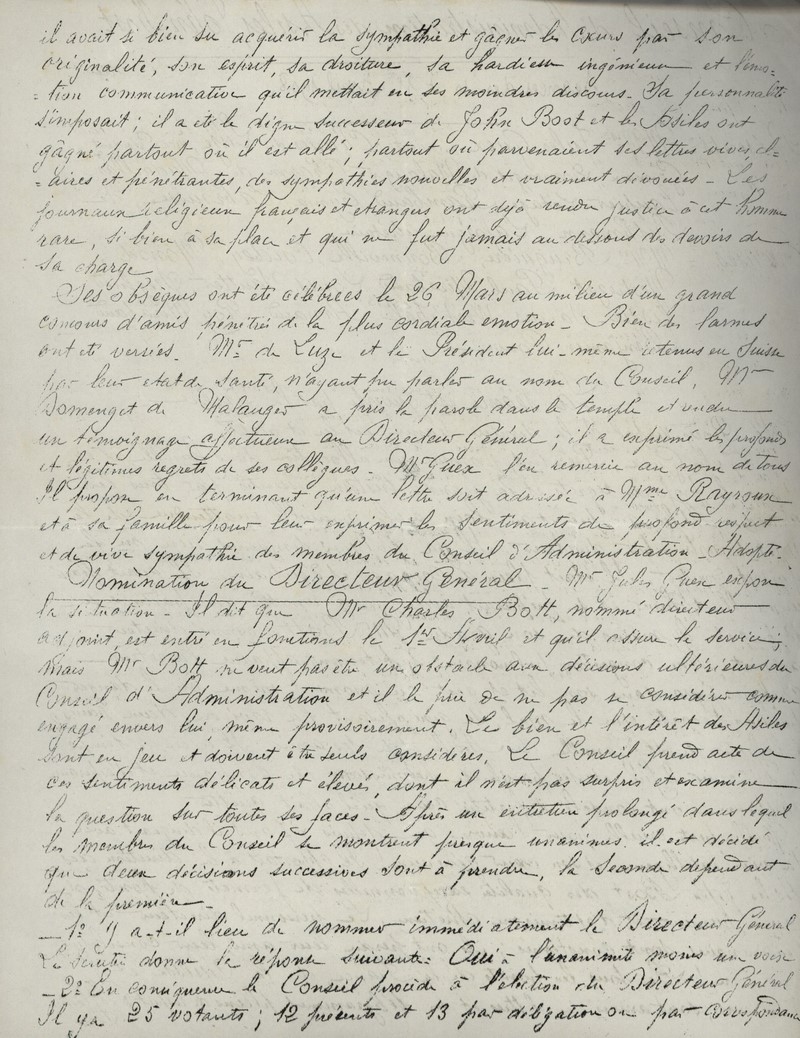 il avait si bien su acquérir la sympathie et gâgner les cœurs par son
originalité, son esprit, sa droiture, sa hardiesse ingénieuse et l'émo=
=tion communicative qu'il mettait en ses moindres discours_ Sa personnalité
s'imposait; il a été le digne successeur de John Bost et les Asiles ont
gâgné partout où il est allé; partout où parvenaient ses lettres vives cl=
=aires et pénétrantes, des sympathies nouvelles et vraiment dévouées_ Les
journaux religieux français et etrangers ont déjà rendu justice à cet homme
rare, si bien à sa place et qui ne fut jamais au dessous des devoirs de
sa charge
Ses obsèques ont été célébrées le 26 Mars au milieu d'un grand
concours d'amis pénétrés de la plus cordiale emotion_ Bien des larmes
ont été versées. Mr de Luze et le Président lui-même retenus en Suisse
par leur etat de santé, n'ayant pu parler au nom du Conseil, Mr
Domenget de Malauger a pris la parole dans le temple et rendu
un témoignage affectueux au Directeur Général; il a exprimé les profonds
et légitimes regrets de ses collègues_ Mr Guex l'en remercie au nom de tous
Il propose en terminant qu'une lettre soit adressée à Mme Rayroux
et à sa famille pour leur exprimer les sentiments de profond respect
et de vive sympathie des membres du Conseil d'Administration_ Adopté_
Nomination du Directeur Général_ Mr Jules Guex expose
la situation_ Il dit que Mr Charles Bost, nommé directeur
adjoint, est entré en fonctions le 1er Avril et qu'il assure le service;
mais Mr Bost ne veut pas être un obstacle aux décisions ultérieures du
Conseil d'Administration et il le prie de ne pas se considérer comme
engagé envers lui, même provisoirement. Le bien et l'intérêt des Asiles
sont en jeu et doivent être seuls considérés. Le Conseil prend acte de
ces sentiments délicats et élevés, dont il n'est pas surpris et examine
la question sur toutes ses faces_ Après un entretien prolongé dans lequel
les membres du Conseil se montrent presque unanimes il est décidé
que deux décisions successives sont à prendre, la seconde dépendant
de la première_
_1º Y a-t-il lieu de nommer immédiatement le Directeur Général
Le scrutin donne la réponse suivante: Oui à l'unanimité moins une voix
_2º En conséquence le Conseil procède à l'élection du Directeur Général
Il y a 25 votants; 12 présents et 13 par délégation ou par correspondance